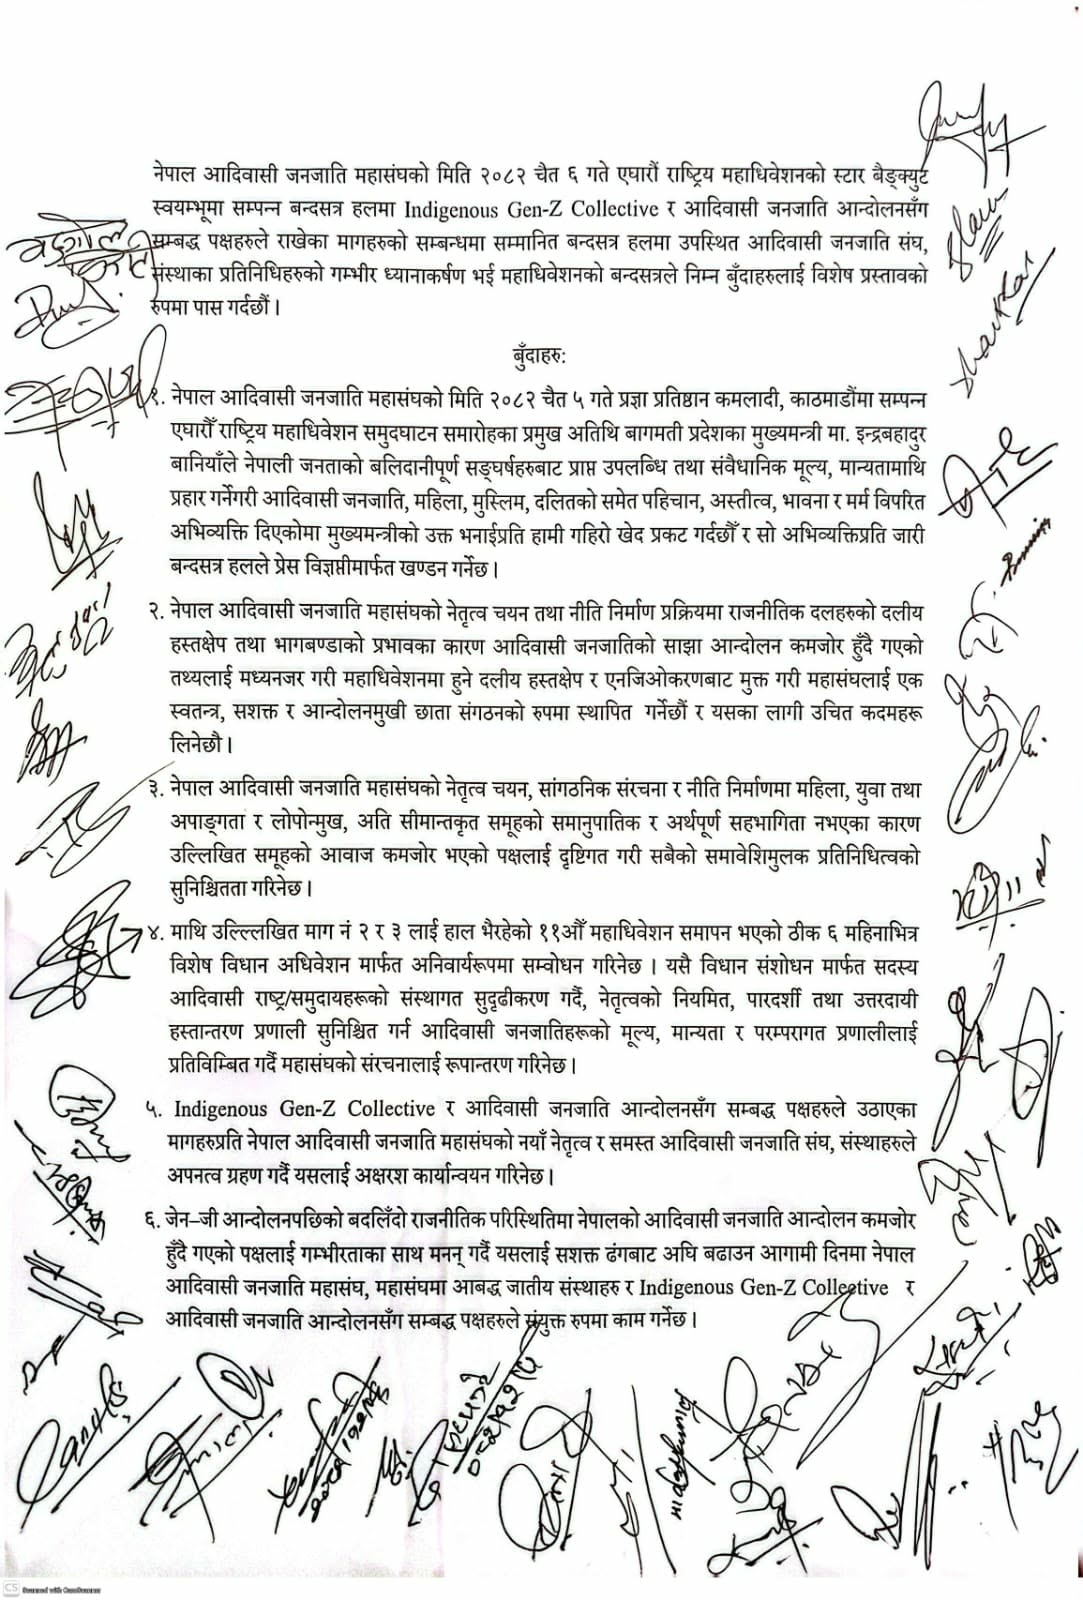 नेपाल आदिवासी जनजाति महासंघको मिति २०८२ चैत ६ गते एघारौं राष्ट्रिय महाधिवेशनको स्टार बैङ्क्युट
स्वयम्भूमा सम्पन्न बन्दसत्र हलमा Indigenous Gen-Z Collective र आदिवासी जनजाति आन्दोलनसँग
सम्बद्ध पक्षहरुले राखेका मागहरुको सम्बन्धमा सम्मानित बन्दसत्र हलमा उपस्थित आदिवासी जनजाति संघ,
संस्थाका प्रतिनिधिहरुको गम्भीर ध्यानाकर्षण भई महाधिवेशनको बन्दसत्रले निम्न बुँदाहरुलाई विशेष प्रस्तावको
रुपमा पास गर्दछौं।
बुँदाहरु:
१. नेपाल आदिवासी जनजाति महासंघको मिति २०८२ चैत ५ गते प्रज्ञा प्रतिष्ठान कमलादी, काठमाडौंमा सम्पन्न
एघारौँ राष्ट्रिय महाधिवेशन समुदघाटन समारोहका प्रमुख अतिथि बागमती प्रदेशका मुख्यमन्त्री मा. इन्द्रबहादुर
बानियाँले नेपाली जनताको बलिदानीपूर्ण सङ्घर्षहरुबाट प्राप्त उपलब्धि तथा संवैधानिक मूल्य, मान्यतामाथि
प्रहार गर्नेगरी आदिवासी जनजाति, महिला, मुस्लिम, दलितको समेत पहिचान, अस्तीत्व, भावना र मर्म विपरित
अभिव्यक्ति दिएकोमा मुख्यमन्त्रीको उक्त भनाईप्रति हामी गहिरो खेद प्रकट गर्दछौँ र सो अभिव्यक्तिप्रति जारी
बन्दसत्र हलले प्रेस विज्ञप्तीमार्फत खण्डन गर्नेछ।
२. नेपाल आदिवासी जनजाति महासंघको नेतृत्व चयन तथा नीति निर्माण प्रक्रियमा राजनीतिक दलहरुको दलीय
हस्तक्षेप तथा भागबण्डाको प्रभावका कारण आदिवासी जनजातिको साझा आन्दोलन कमजोर हुँदै गएको
तथ्यलाई मध्यनजर गरी महाधिवेशनमा हुने दलीय हस्तक्षेप र एनजिओकरणबाट मुक्त गरी महासंघलाई एक
स्वतन्त्र, सशक्त र आन्दोलनमुखी छाता संगठनको रुपमा स्थापित गर्नेछौं र यसका लागी उचित कदमहरू
लिनेछौ।
३. नेपाल आदिवासी जनजाति महासंघको नेतृत्व चयन, सांगठनिक संरचना र नीति निर्माणमा महिला, युवा तथा
अपाङ्गता र लोपोन्मुख, अति सीमान्तकृत समूहको समानुपातिक र अर्थपूर्ण सहभागिता नभएका कारण
उल्लिखित समूहको आवाज कमजोर भएको पक्षलाई दृष्टिगत गरी सबैको समावेशिमुलक प्रतिनिधित्वको
सुनिश्चितता गरिनेछ।
४. माथि उल्ल्लिखित माग नं २ र ३ लाई हाल भैरहेको ११औँ महाधिवेशन समापन भएको ठीक ६ महिनाभित्र
विशेष विधान अधिवेशन मार्फत अनिवार्यरूपमा सम्वोधन गरिनेछ । यसै विधान संशोधन मार्फत सदस्य
आदिवासी राष्ट्र/समुदायहरूको संस्थागत सुदृढीकरण गर्दै, नेतृत्वको नियमित, पारदर्शी तथा उत्तरदायी
हस्तान्तरण प्रणाली सुनिश्चित गर्न आदिवासी जनजातिहरूको मूल्य, मान्यता र परम्परागत प्रणालीलाई
प्रतिविम्बित गर्दै महासंघको संरचनालाई रूपान्तरण गरिनेछ।
५. Indigenous Gen-Z Collective र आदिवासी जनजाति आन्दोलनसँग सम्बद्ध पक्षहरुले उठाएका
मागहरुप्रति नेपाल आदिवासी जनजाति महासंघको नयाँ नेतृत्व र समस्त आदिवासी जनजाति संघ, संस्थाहरुले
अपनत्व ग्रहण गर्दै यसलाई अक्षरश कार्यान्वयन गरिनेछ।
६. जेन–जी आन्दोलनपछिको बदलिँदो राजनीतिक परिस्थितिमा नेपालको आदिवासी जनजाति आन्दोलन कमजोर
हुँदै गएको पक्षलाई गम्भीरताका साथ मनन् गर्दै यसलाई सशक्त ढंगबाट अघि बढाउन आगामी दिनमा नेपाल
आदिवासी जनजाति महासंघ, महासंघमा आबद्ध जातीय संस्थाहरु र Indigenous Gen-Z Collective र
आदिवासी जनजाति आन्दोलनसँग सम्बद्ध पक्षहरुले संयुक्त रुपमा काम गर्नेछ।
CS Scanned with CamScanner